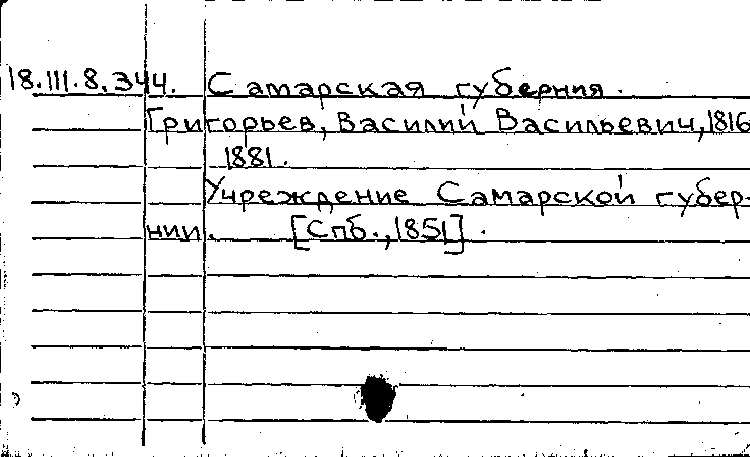 18.III.8.344. Самарская губерния.
Григорьев, Василий Васильевич, 1816
1881.
Учреждение Самарской губер-
нии. [Спб., 1851].